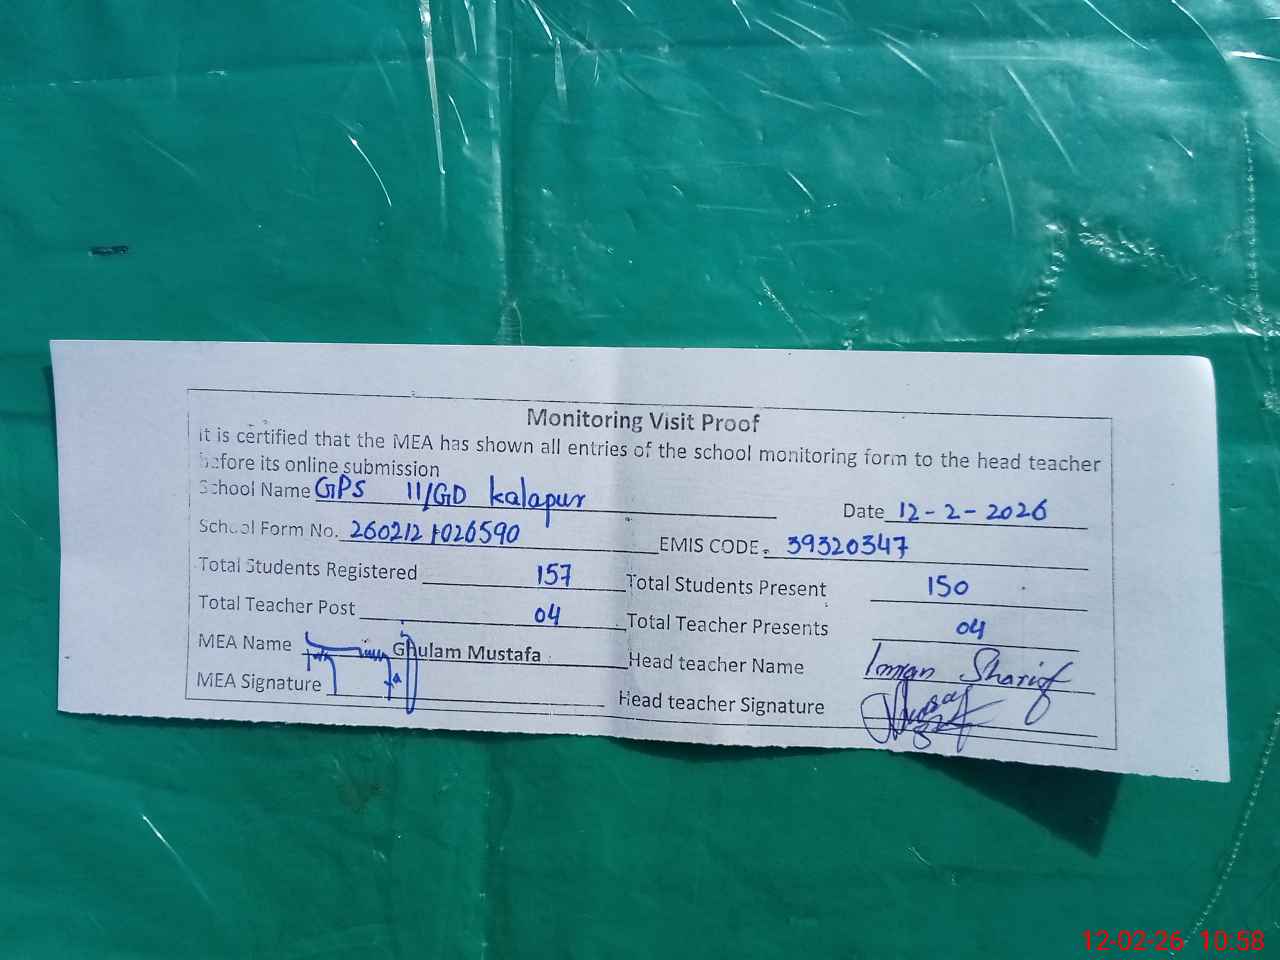 Monitoring Visit Proof
It is certified that the MEA has shown all entries of the school monitoring form to the head teacher
before its online submission
School Name GPS 11/GD Kalapur Date 12-2-2026
School Form No. 260212 1026590 EMIS CODE. 39320347
Total Students Registered 157 Total Students Present 150
Total Teacher Post 04 Total Teacher Presents 04
MEA Name Ghulam Mustafa Head teacher Name Imran Sharif
MEA Signature Head teacher Signature
12-02-26 10:58